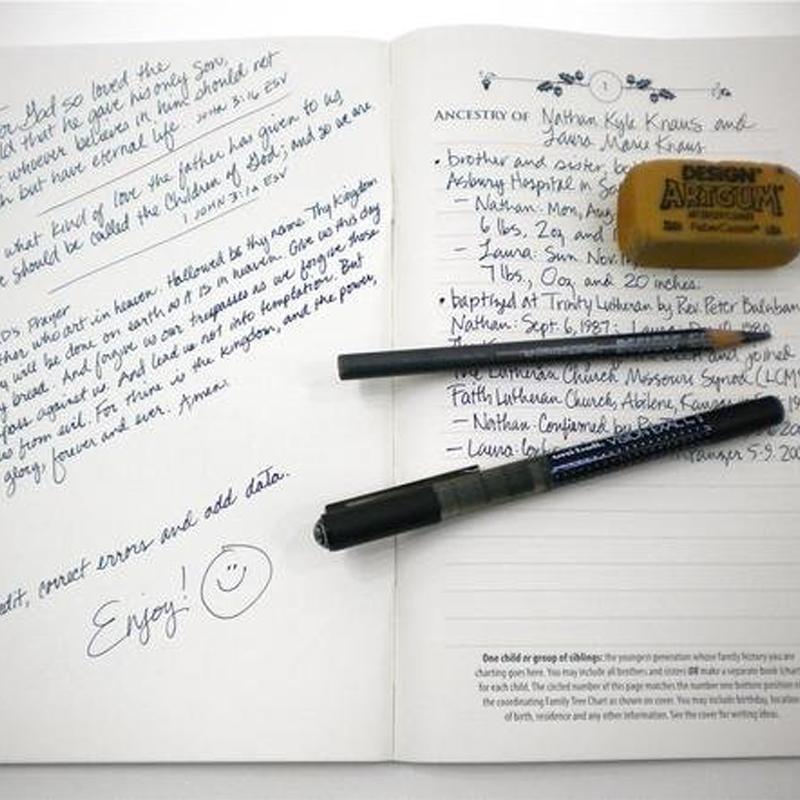 God so loved the
that he gave his only Son,
whoever believes in him should not
but have eternal life. JOHN 3:16 ESV
what kind of love the father has given to us,
should be called the Children of God; and so we are.
1 JOHN 3:1A ESV
Prayer
who art in heaven. Hallowed be thy name. Thy Kingdom
will be done on earth as it is in heaven. Give us this day
bread. And forgive us our trespasses as we forgive those
against us. And lead us not into temptation. But
us from evil. For thine is the kingdom, and the power,
glory, forever and ever. Amen.
edit, correct errors and add data.
Enjoy!
1
ANCESTRY OF Nathan Kyle Kraus and
Laura Marie Kraus
• brother and sister,
Asbury Hospital in
– Nathan: Mon, Aug
6 lbs, 2oz and
– Laura: Sun Nov.
7 lbs, 0oz and 20 inches.
• baptized at Trinity Lutheran by Rev. Peter
Nathan: Sept. 6, 1987;
and joined
The Lutheran Church Missouri Synod (LCM
Faith Lutheran Church, Abilene,
– Nathan: Confirmed by
– Laura: 5-9-
DESIGN
ARTGUM
FaberCastell
One child or group of siblings: the youngest generation whose family history you are
charting goes here. You may include all brothers and sisters OR make a separate book (chart
for each child. The circled number of this page matches the number one bottom position
the coordinating Family Tree Chart as shown on cover. You may include birthday, location
of birth, residence and any other information. See the cover for writing ideas.